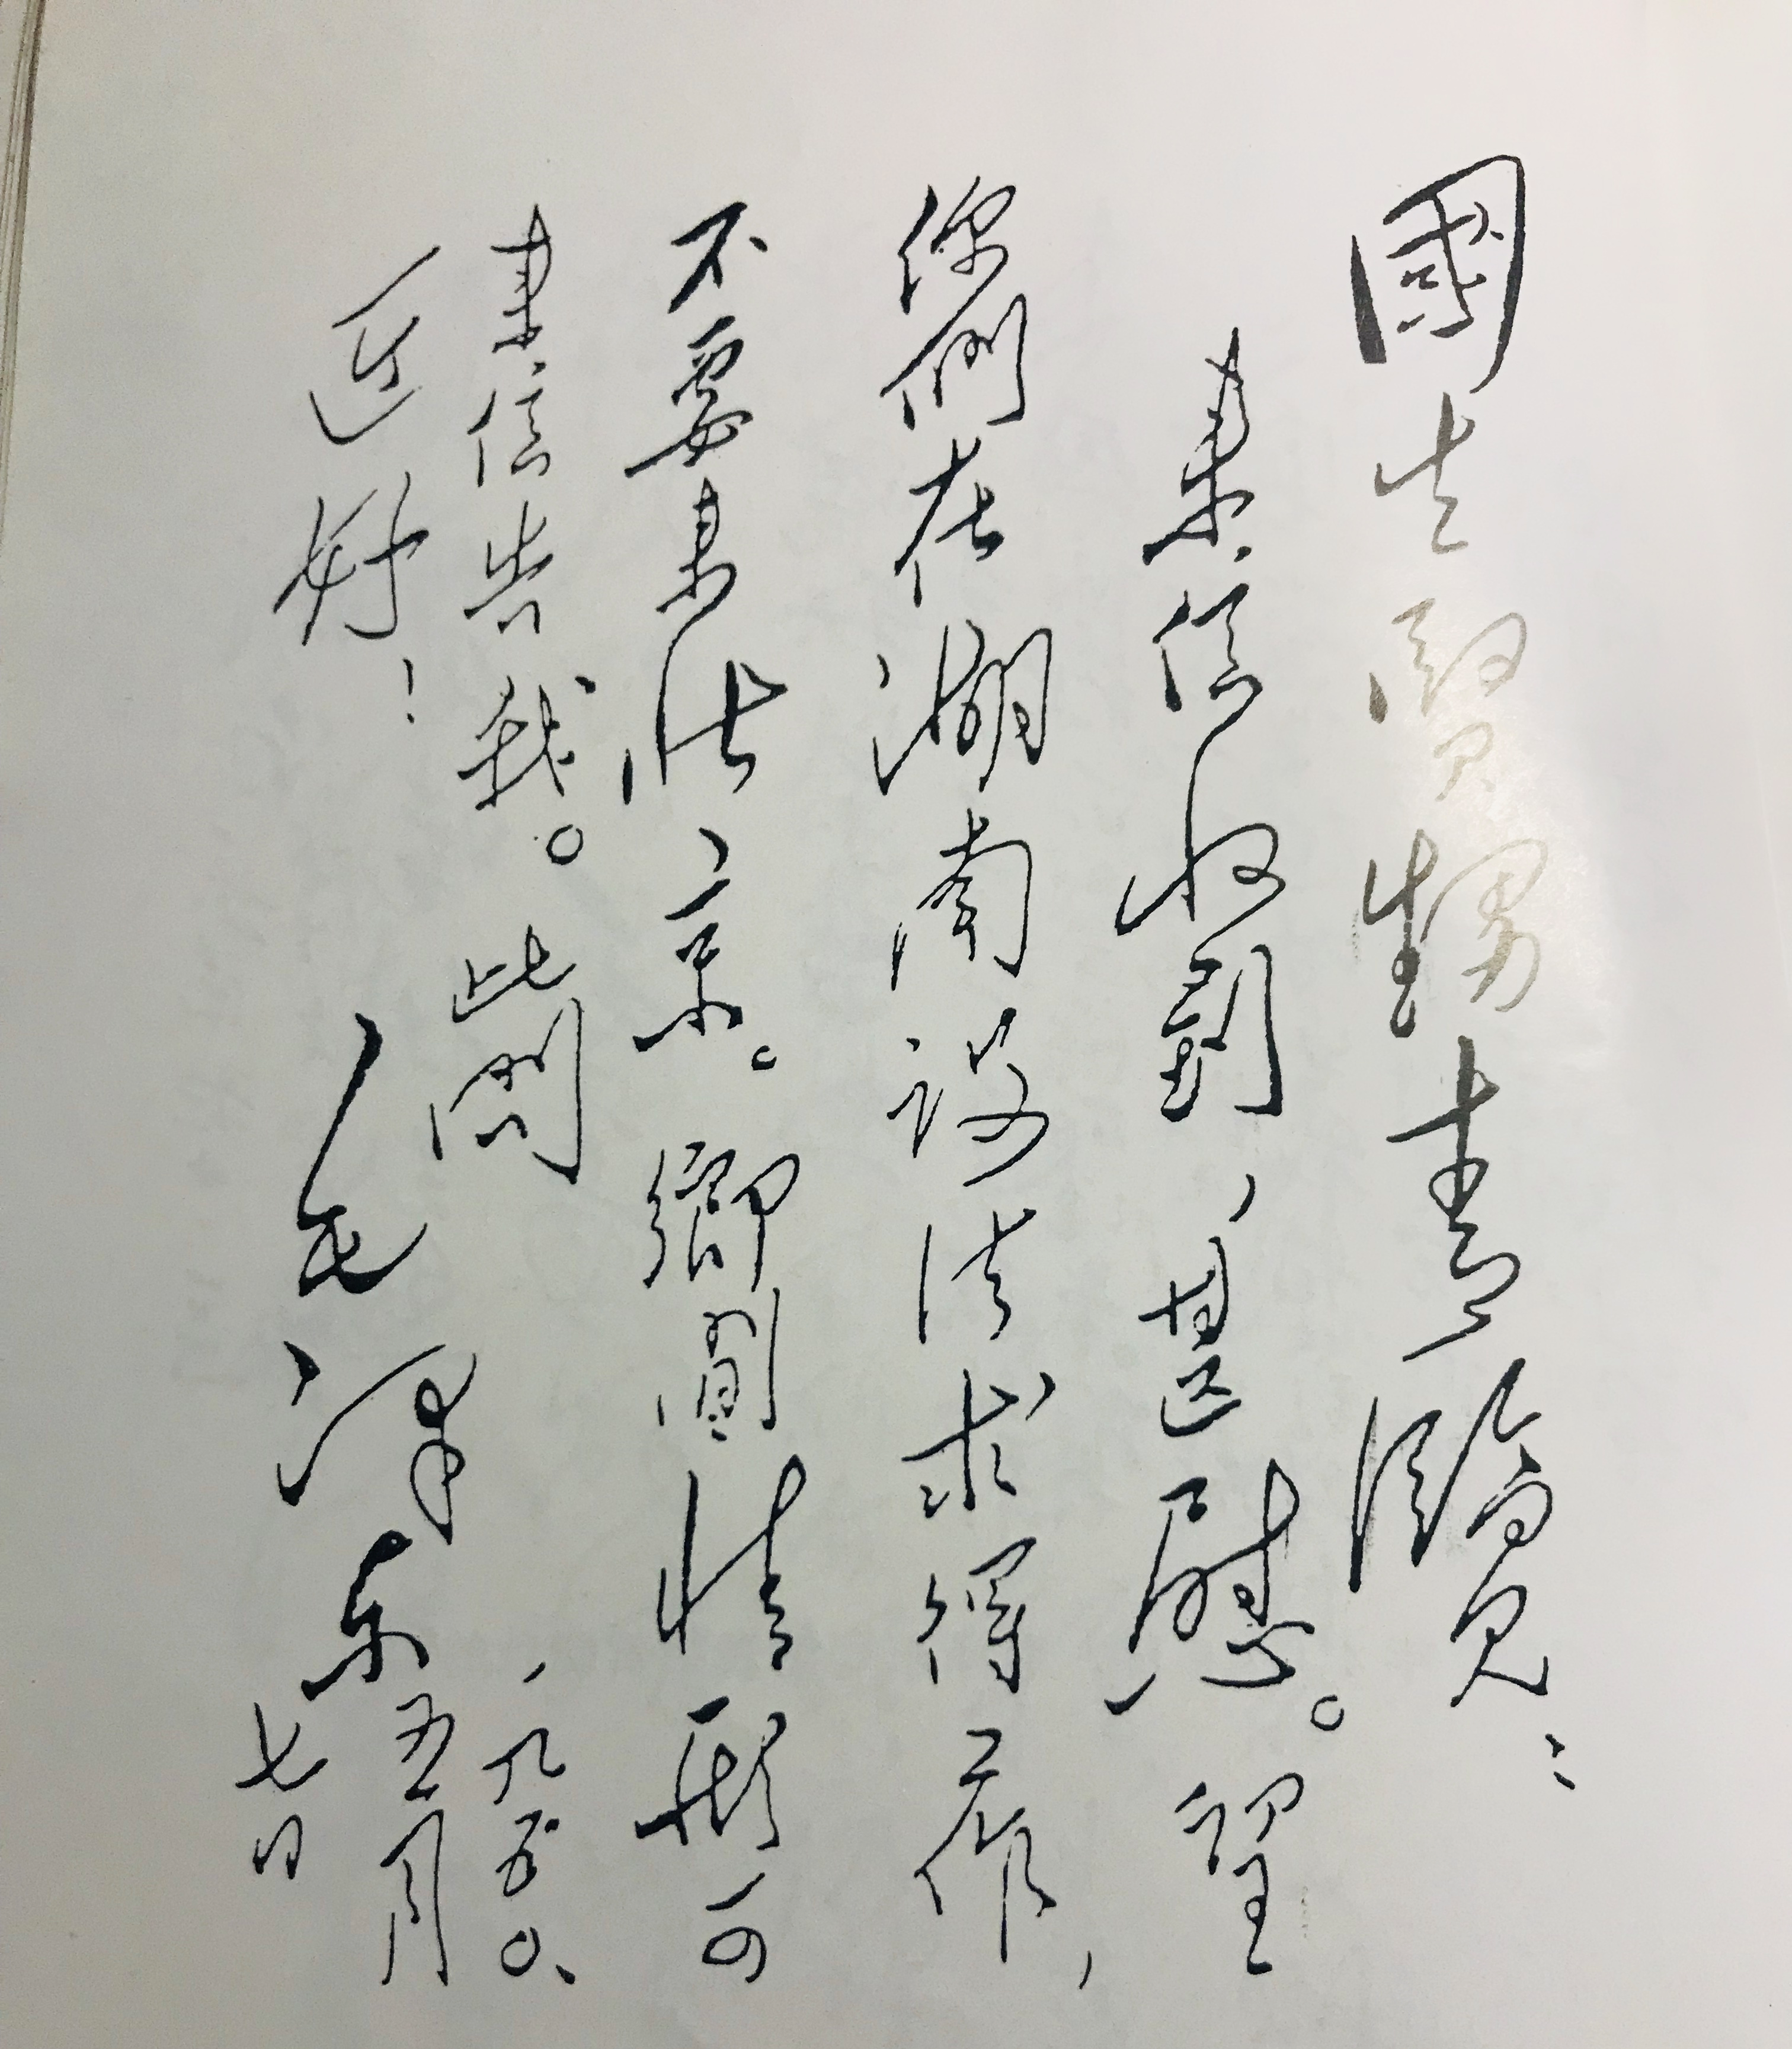 國生賢甥青覽：
來信收到，甚慰。望
你們在湖南設法求得工作，
不要來北京。鄉間情形可
來信告我。此問
近好！
毛澤東
一九五〇、
五月
七日